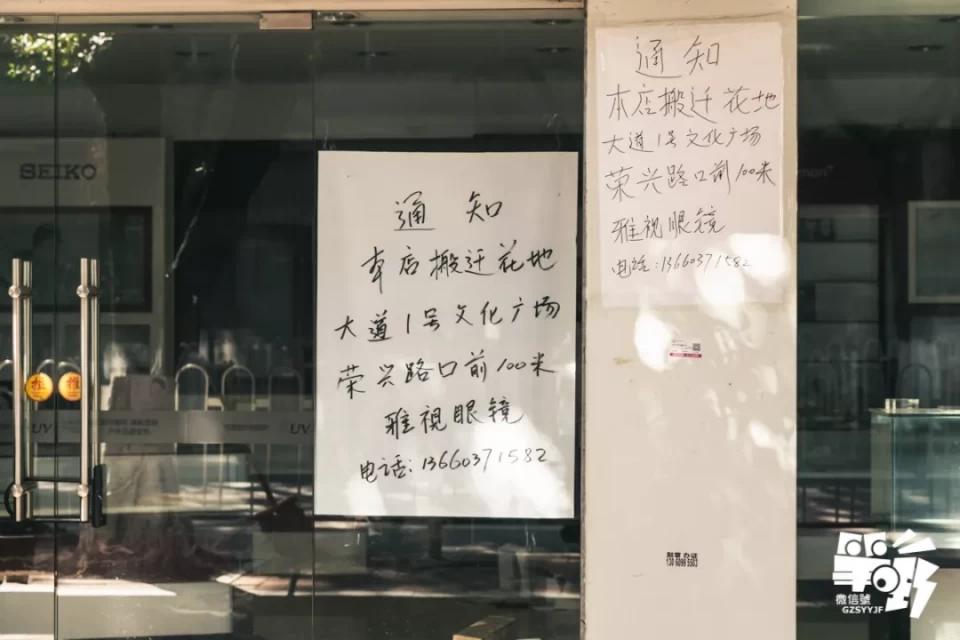 SEIKO
通知
本店搬迁花地
大道1号文化广场
荣兴路口前100米
雅视眼镜
电话:13660371582
通知
本店搬迁花地
大道1号文化广场
荣兴路口前100米
雅视眼镜
电话:13660371582
推
推
UV
UV
刻章 办证
微信號
GZSYYJF